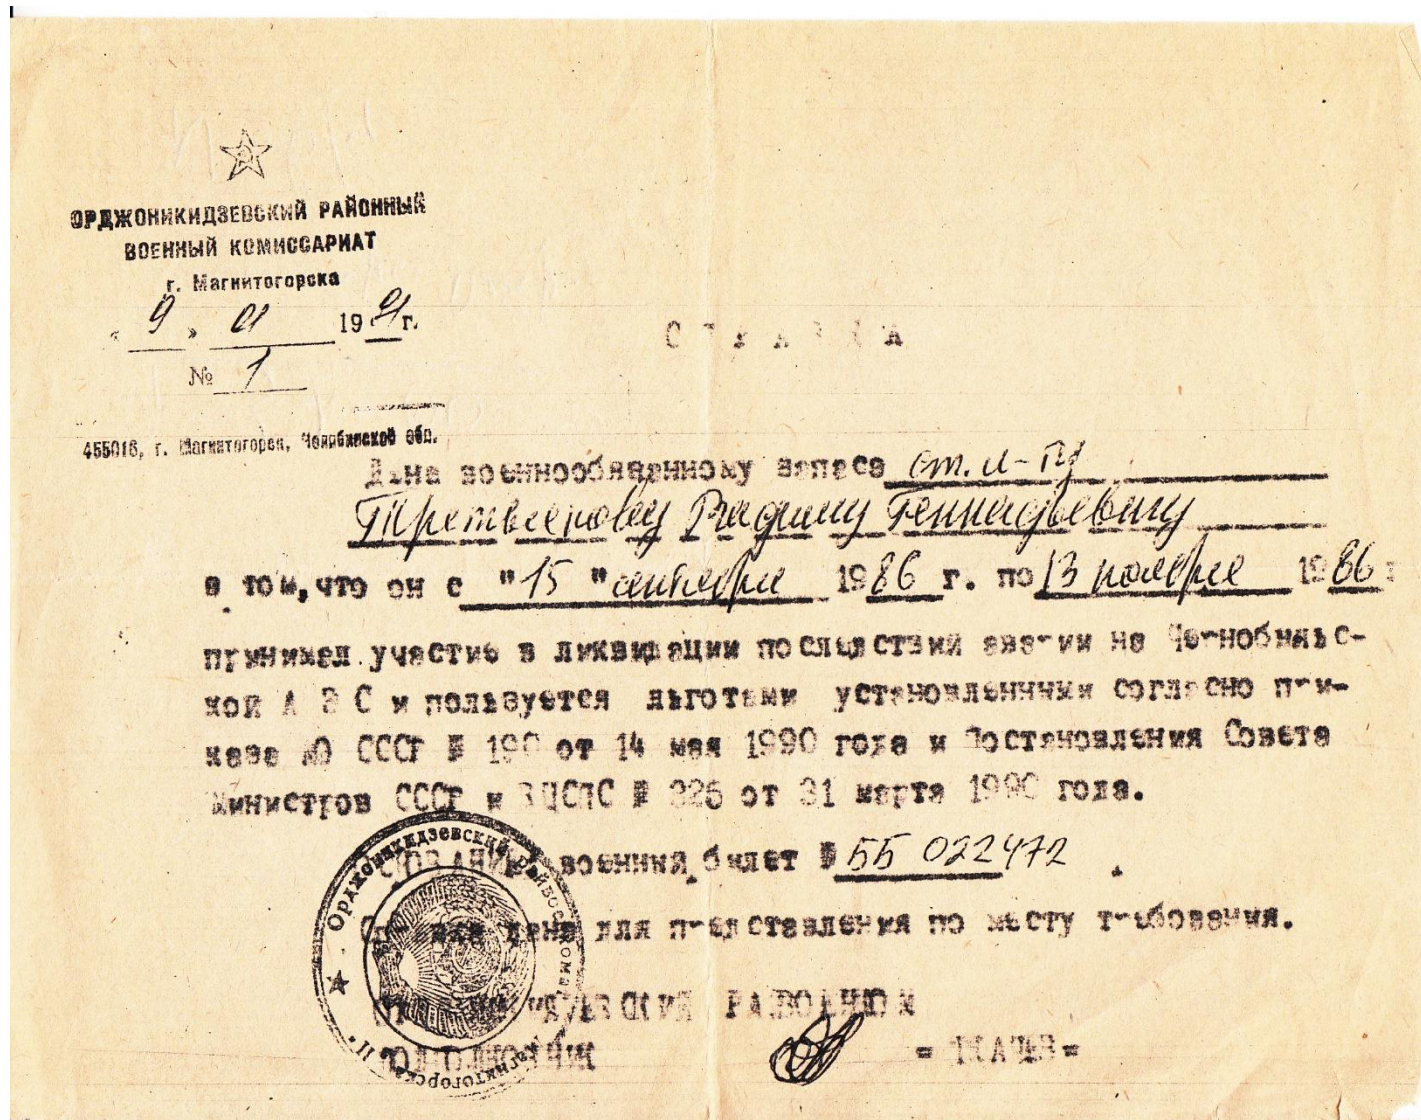 ОРДЖОНИКИДЗЕВСКИЙ РАЙОННЫЙ
ВОЕННЫЙ КОМИССАРИАТ
г. Магнитогорска
« 9 » 01 1991 г.
№ 1
СПРАВКА
455016, г. Магнитогорск, Челябинской обл.
Дана военнообязанному запаса ст. л-ту
Третьякову Вадиму Геннадьевичу
в том, что он с "15 " сентября 1986 г. по 13 ноября 1986 г
принимал участие в ликвидации последствий аварии на Чернобыльс-
кой А Э С и пользуется льготами установленными согласно при-
каза МО СССР № 190 от 14 мая 1990 года и Постановления Совета
Министров СССР и ВЦСПС № 325 от 31 марта 1990 года.
ОСНОВАНИЕ: военный билет № ББ 022472
Справка дана для представления по месту требования.
ОРДЖОНИКИДЗЕВСКИЙ РАЙВОЕНКОМ
ПОДПОЛКОВНИК = ТКАЧЕВ =
Орджоникидзевский райвоенкомат
г. Магнитогорска